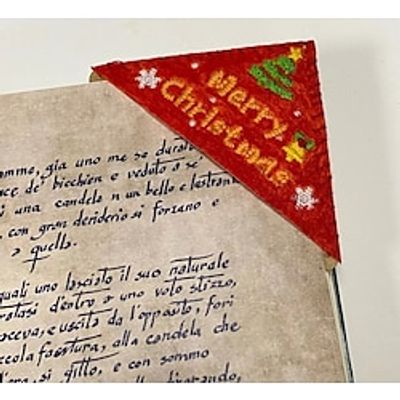 Merry
Christmas
omme, gia uno me se durato
ce de' bicchieri e veduto a se'
una candela n un bello e lustrant
, con gran deriderio si forzano e
a quella.
quali uno lasciato il suo naturale
dentro a uno voto stizzo,
acceva, e uscita da l'opposito, fori
ccola fassitura, alla candela che
si gitto, e con sommo